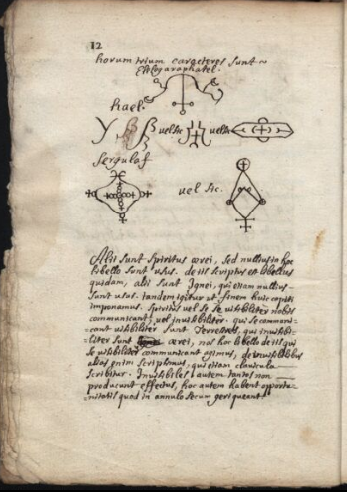 12
horum trium caracteres sunt ~
Elelogaraphatel.
hael.
vel sic vel sic
Sergulaf
vel sic.
Alii sunt spiritus aerei, sed nullus in hoc
libello sunt usus. de iis scriptus est libellus
quidam, alii sunt Ignei, qui etiam nullius
sunt usus. tandem igitur ut finem huic capiti
imponamus. Spiritus vel se se visibiliter nobis
communicant, vel invisibiliter. qui se communi=
cant visibiliter sunt terrestres, qui invisibi=
=liter sunt aerei, nos hoc libello de iis qui
se visibiliter communicant agimus, de invisibilibus
alias enim scripsimus, qui etiam clavicula
scribitur. Invisibiles autem tantos non
producunt effectus, hoc autem habent opportu=
=nitatis quod in annulo secum geri queant